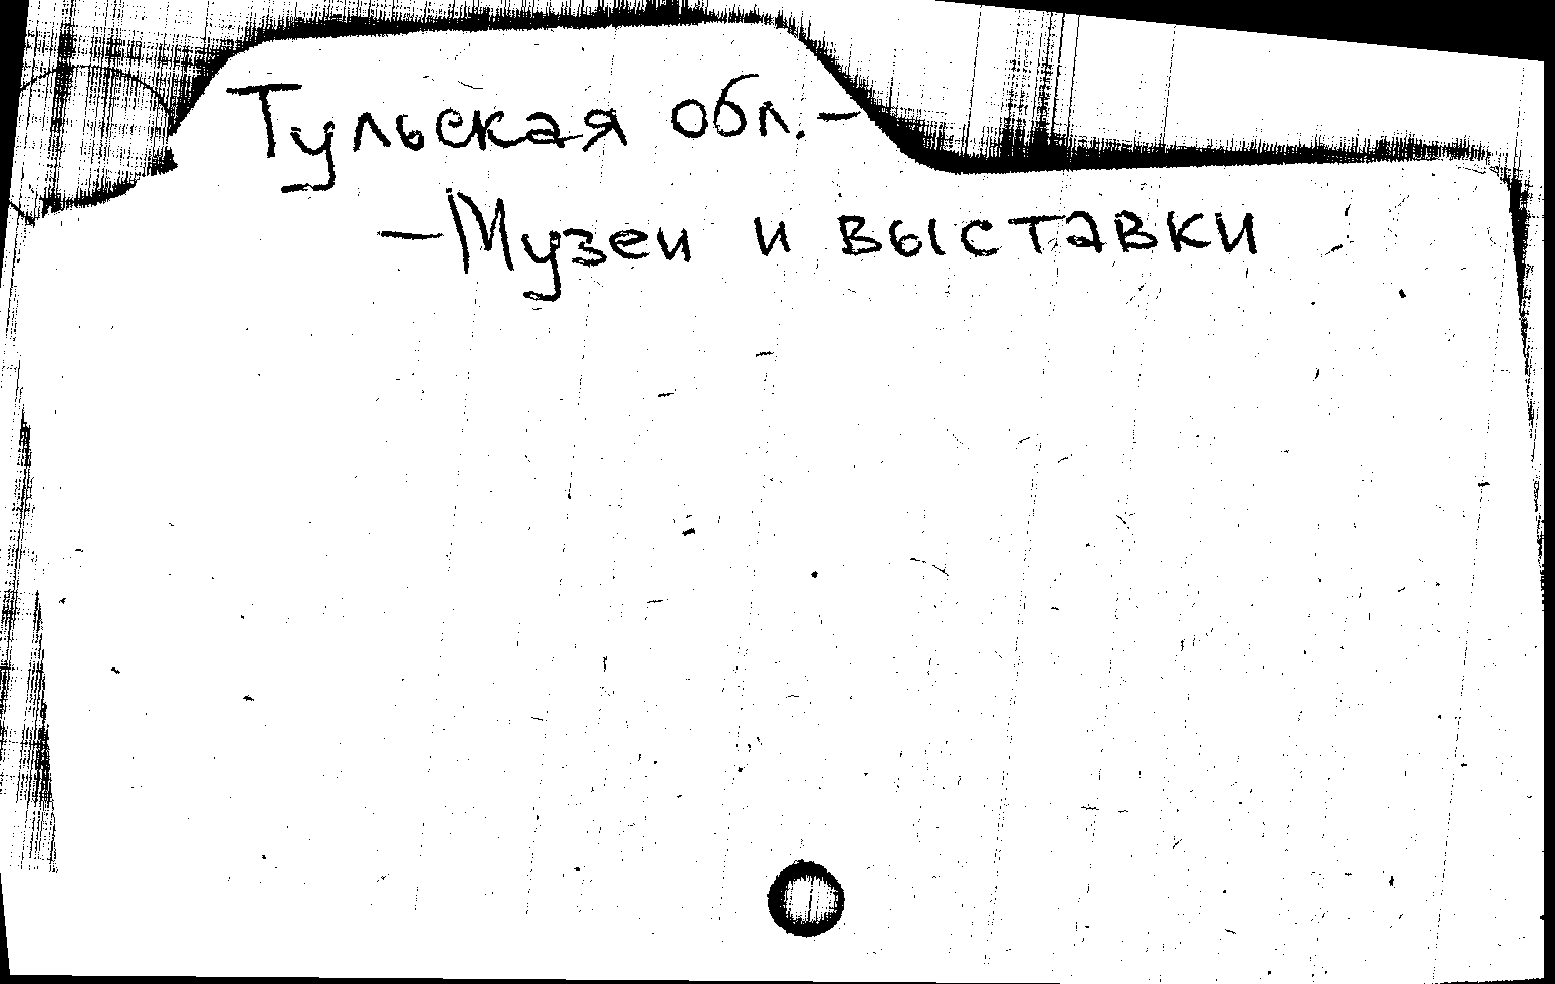 Тульская обл. —
— Музеи и выставки